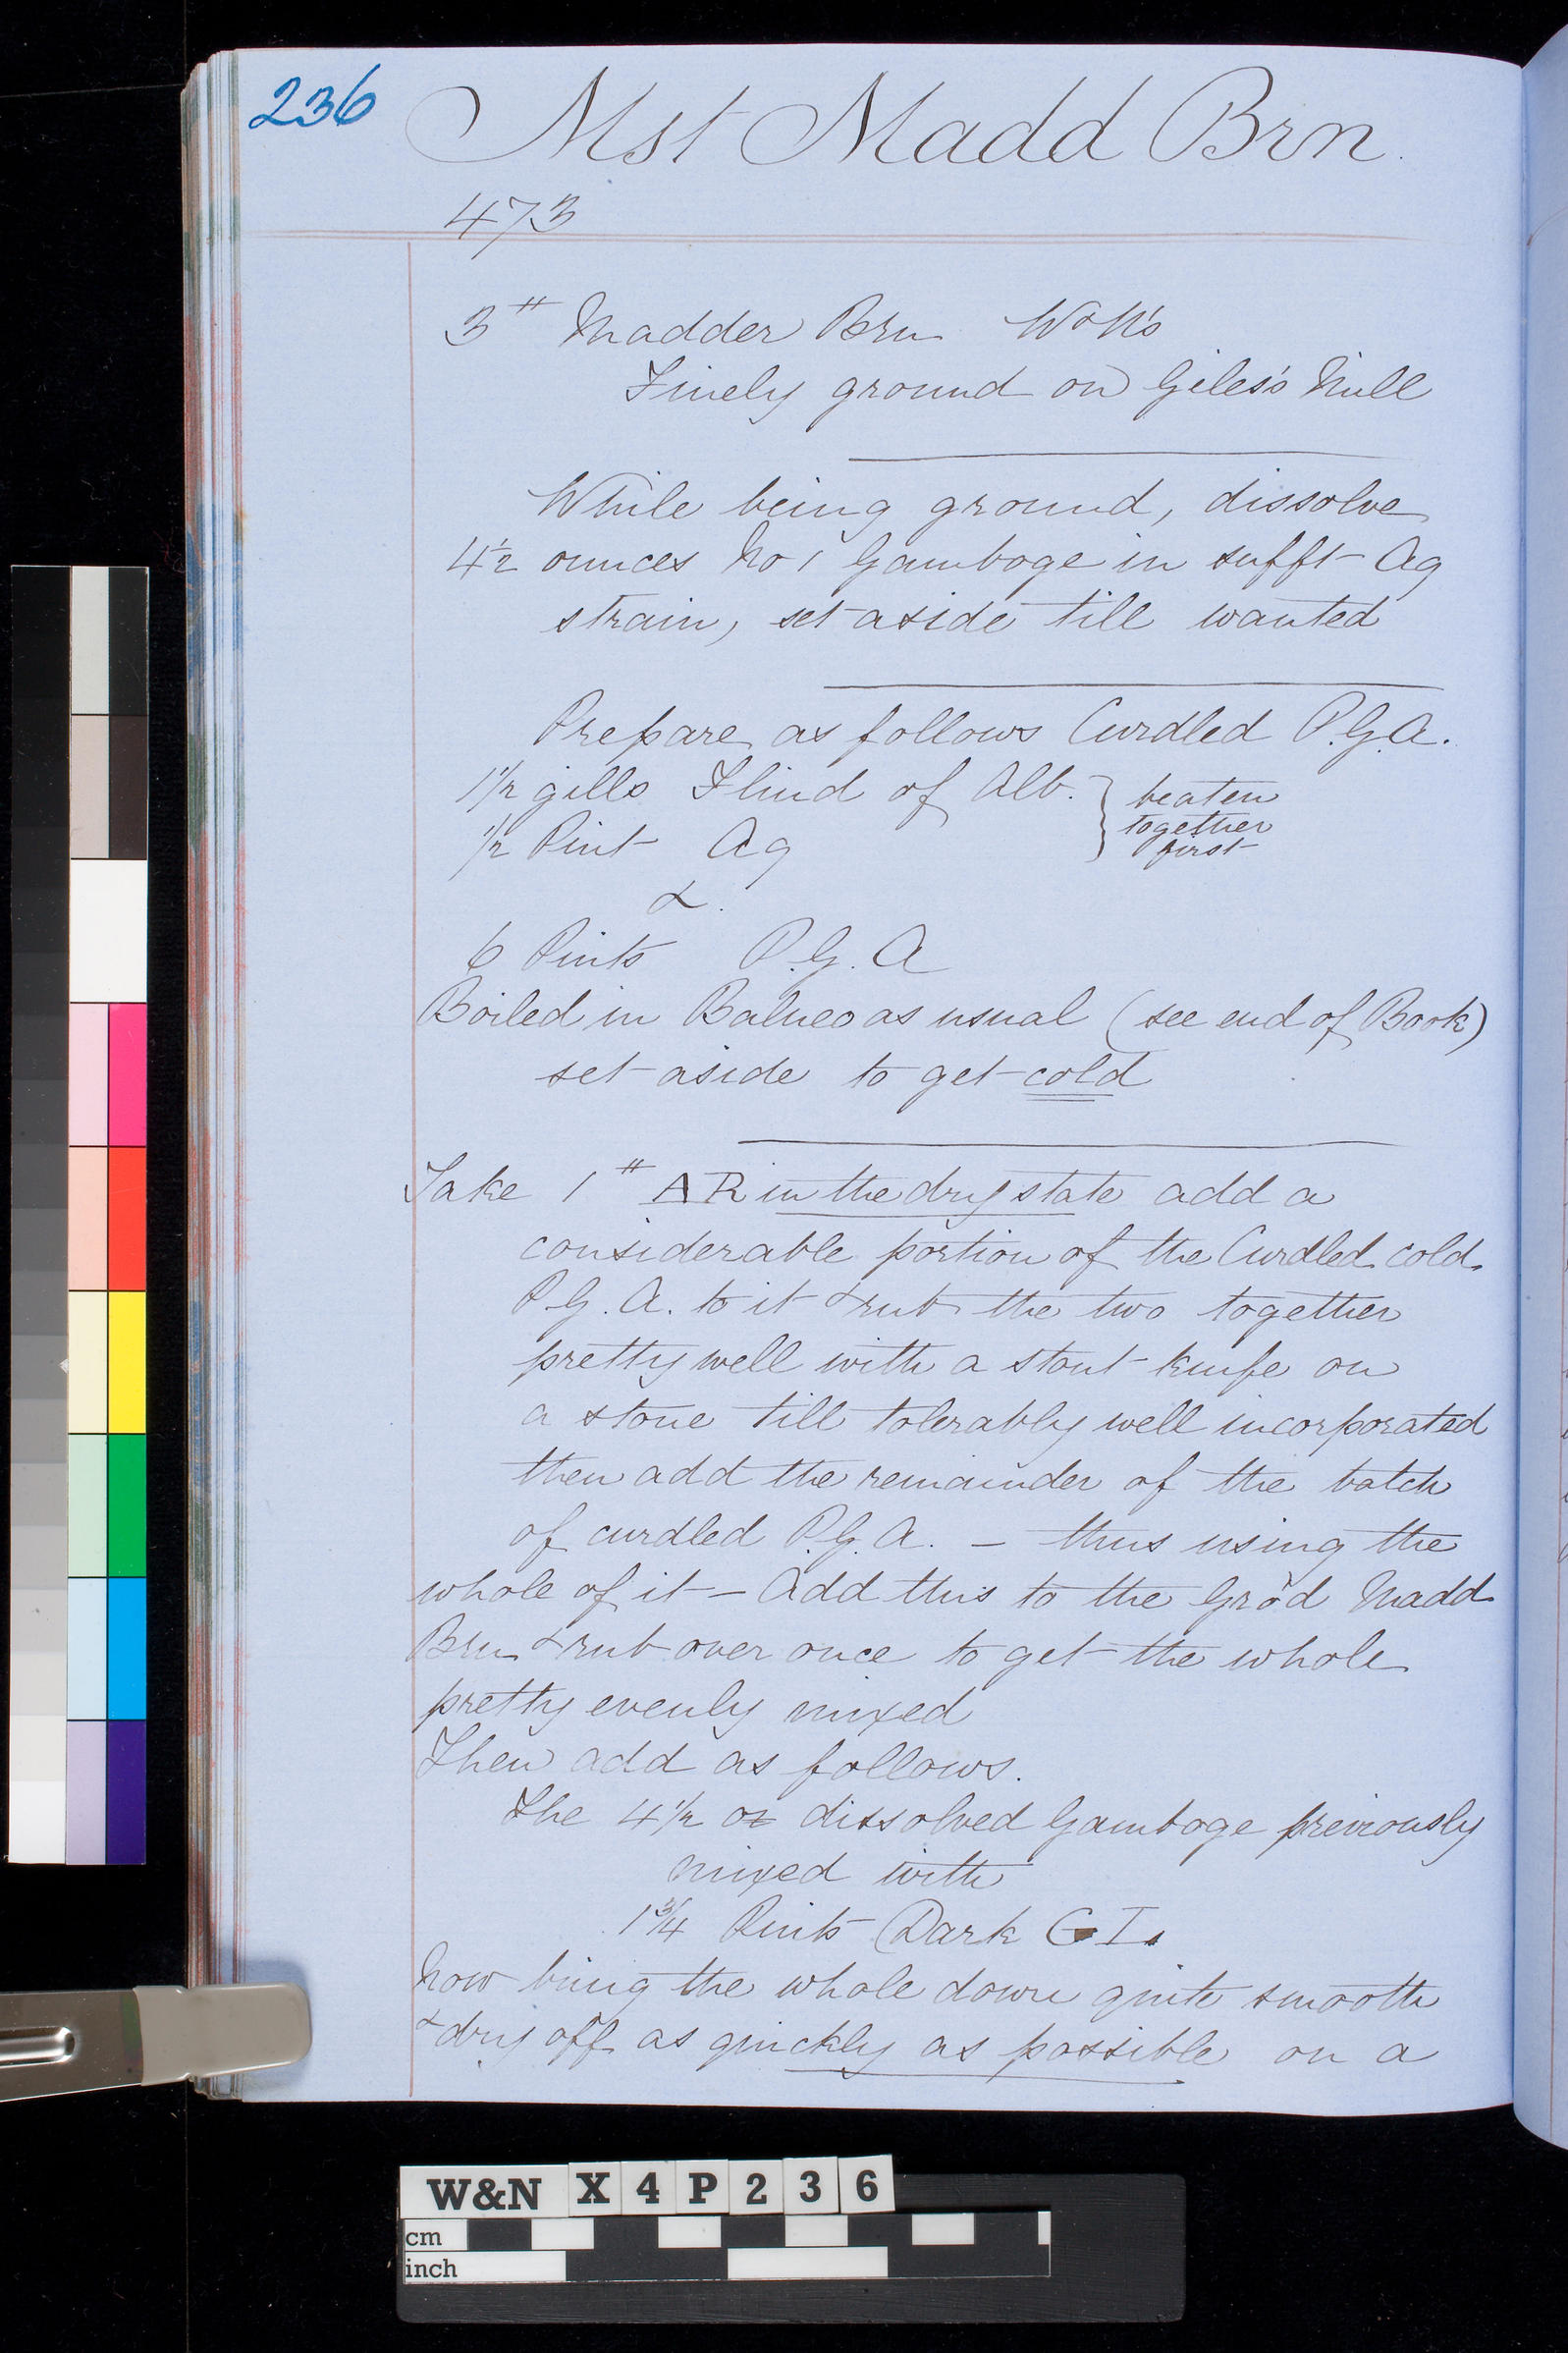 236 Mst Madd Brn.
473
3# Madder Brn W&N's
Finely ground on Giles's Mill
While being ground, dissolve
4½ ounces No 1 Gamboge in sufft Aq
strain, set aside till wanted
Prepare as follows Curdled P.G.A.
1½ gills Fluid of Alb. } beaten
½ Pint Aq together
first
&
6 Pints P.G.A
Boiled in Balneo as usual (see end of Book)
set aside to get cold
Take 1# AR in the dry state add a
considerable portion of the Curdled cold
P.G.A. to it & rub the two together
pretty well with a stout knife on
a stone till tolerably well incorporated
then add the remainder of the batch
of curdled P.G.A. – thus using the
whole of it – Add this to the Gro'd Madd
Brn & rub over once to get the whole
pretty evenly mixed
Then add as follows.
The 4½ oz dissolved Gamboge previously
mixed with
1¾ Pints Dark GI.
Now bring the whole down quite smooth
& dry off as quickly as possible on a
W&N X4P236
cm
inch